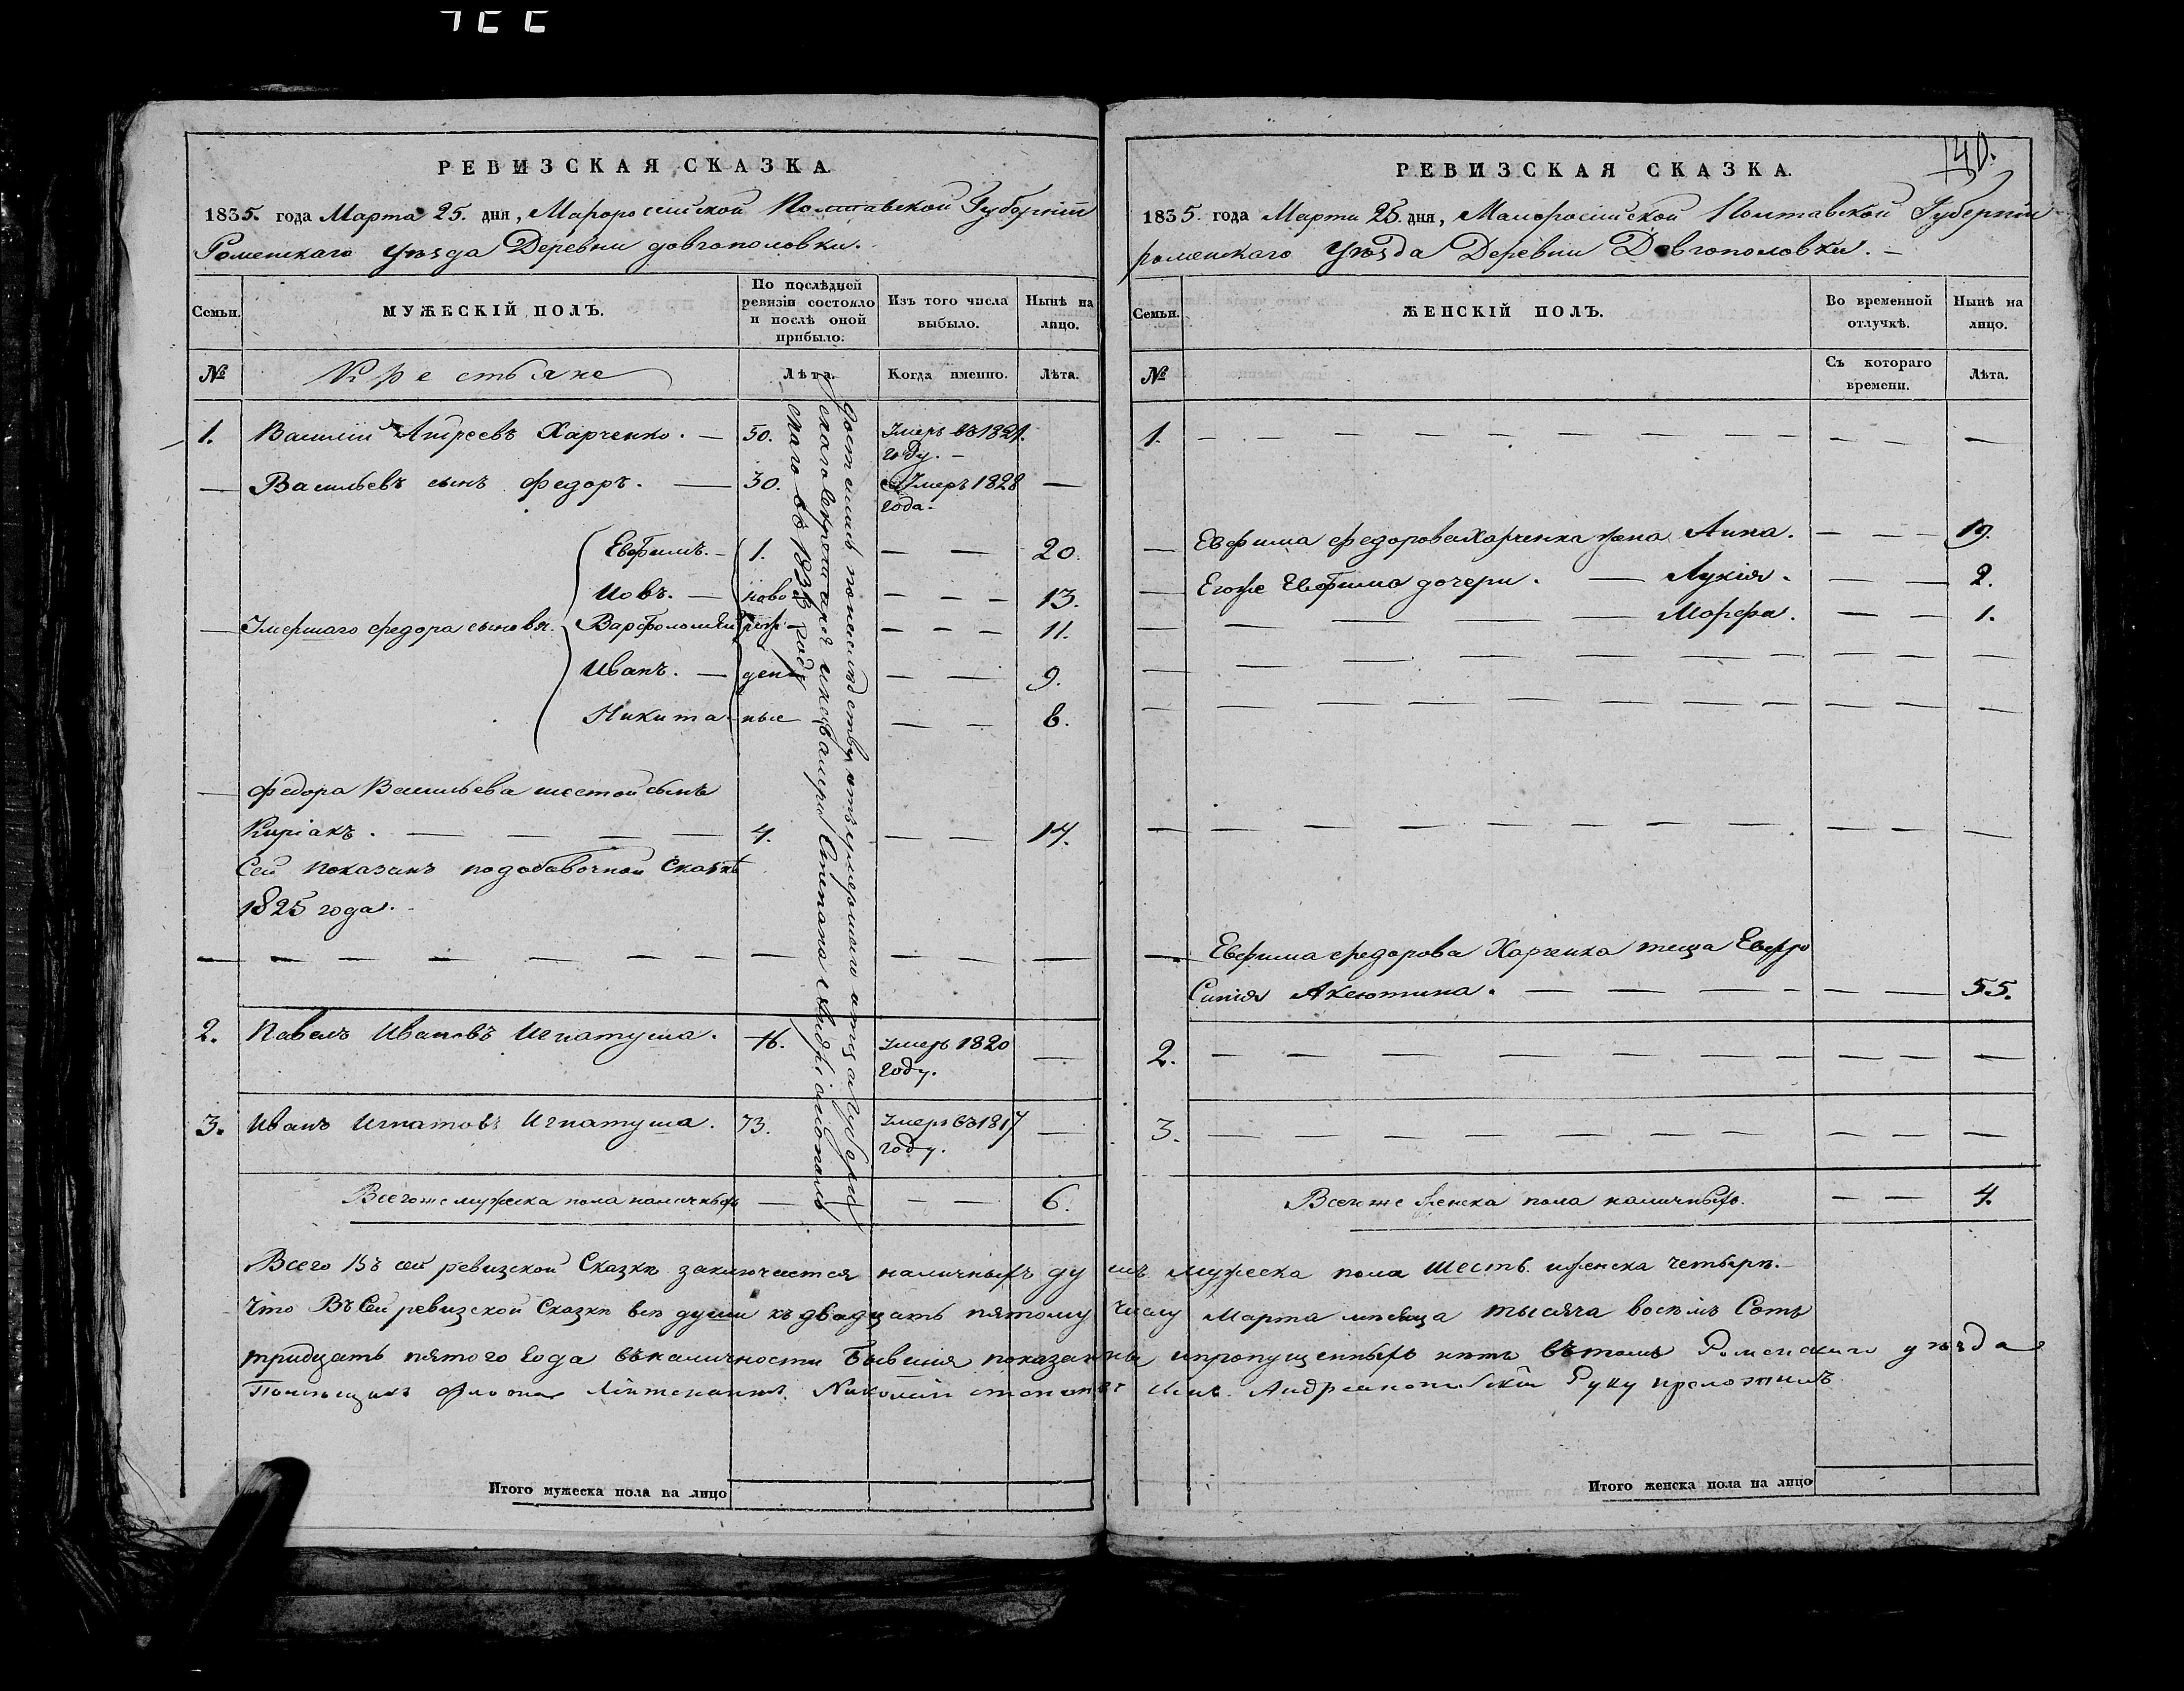 РЕВИЗСКАЯ СКАЗКА.
1835. года Марта 25. дня, Малоросийской Полтавской Губернии
Роменскаго уѣзда Деревни довгополовки.
Семьи.
МУЖЕСКІЙ ПОЛЪ.
По послѣдней ревизіи состояло и послѣ оной прибыло.
Изъ того числа выбыло.
Нынѣ на лицо.
№
Крестьяне
Лѣта.
Когда именно.
Лѣта.
1. Василий Андреевъ Харченко. — 50. Умеръ въ 1821. году. —
— Васильевъ сынъ Федоръ. — 30. Умеръ 1828 года. —
Евфимъ. — 1. — — 20.
Иовъ. — ново — — — 13.
— Умершаго Федора сыновя. Варфоломей рож — — — 11.
Иванъ. — ден — — 9.
Никита ные — — 6.
— Федора Васильева шестой сынъ
Киріакъ. — — — — 4. — — 14.
Сей показанъ подобавочной Сказкѣ
1825 года.
— — — — — — — — — — —
2. Павелъ Ивановъ Игнатуша. 16. Умеръ 1820 году. —
3. Иванъ Игнатовъ Игнатуша. 73. Умеръ въ 1817 году. —
Всего же мужеска пола наличныхъ — — — 6.
Достались по наследству отъ умершего отца губерн
скаго Секретаря Степана Андр
скаго въ 1833 году
140.
РЕВИЗСКАЯ СКАЗКА.
1835. года Марта 25. дня, Малоросийской Полтавской Губернии
роменскаго Уѣзда Деревни Довгополовки. —
Семьи.
ЖЕНСКІЙ ПОЛЪ.
Во временной отлучкѣ.
Нынѣ на лицо.
№
Съ котораго времени.
Лѣта.
1. — — — — — — — — — — — —
— Евфима Федорова Харченка жена Анна. — — — 19.
— Егоже Евфима дочери. — Лукія. — — 2.
— — — — — Марфа. — — 1.
— — — — — — — — — — —
— — — — — — — — — — —
— — — — — — — — — — —
— Евфима Федорова Харченка теща Евфро
Синія Аксютина. — — — — — — 55.
2. — — — — — — — — — — —
3. — — — — — — — — — — —
Всего же женска пола наличныхъ. — — 4.
Всего Въ сей ревизской Сказкѣ заключается наличныхъ душъ мужеска пола шесть. иженска четыре. —
Что Въ Сей ревизской Сказкѣ всѣ души къ двадцать пятому числу Марта месяца тысяча восемъ Сотъ
тридцать пятого Года въ наличности бывшия показанны ипропущенныхъ нѣтъ въ томъ Роменскаго уѣзда
Помещикъ флота Лѣйтенантъ Николай Сынъ Руку приложилъ
Итого мужеска пола на лицо
Итого женска пола на лицо